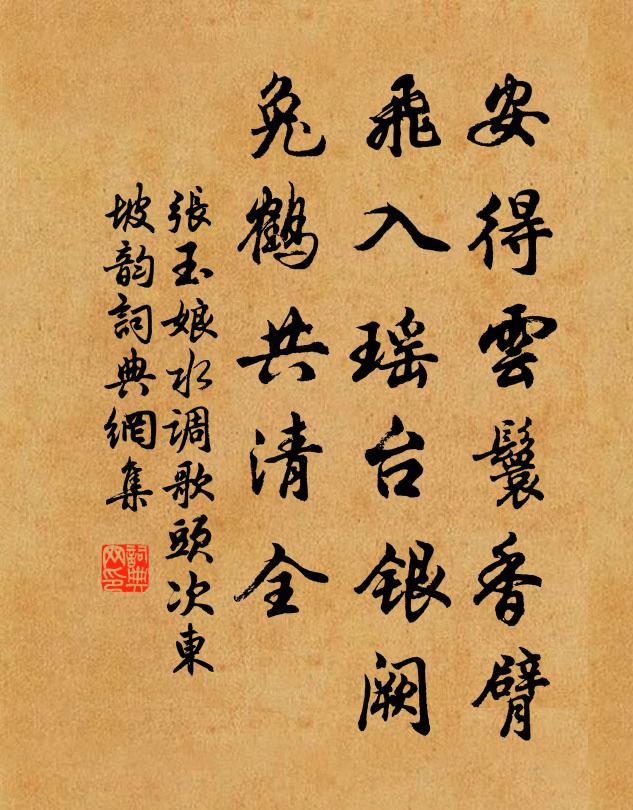 安得雲鬟香臂
飛入瑶台银阙
兔鶴共清全
張玉娘水调歌頭次東
坡韵詞典網集
詞典網印